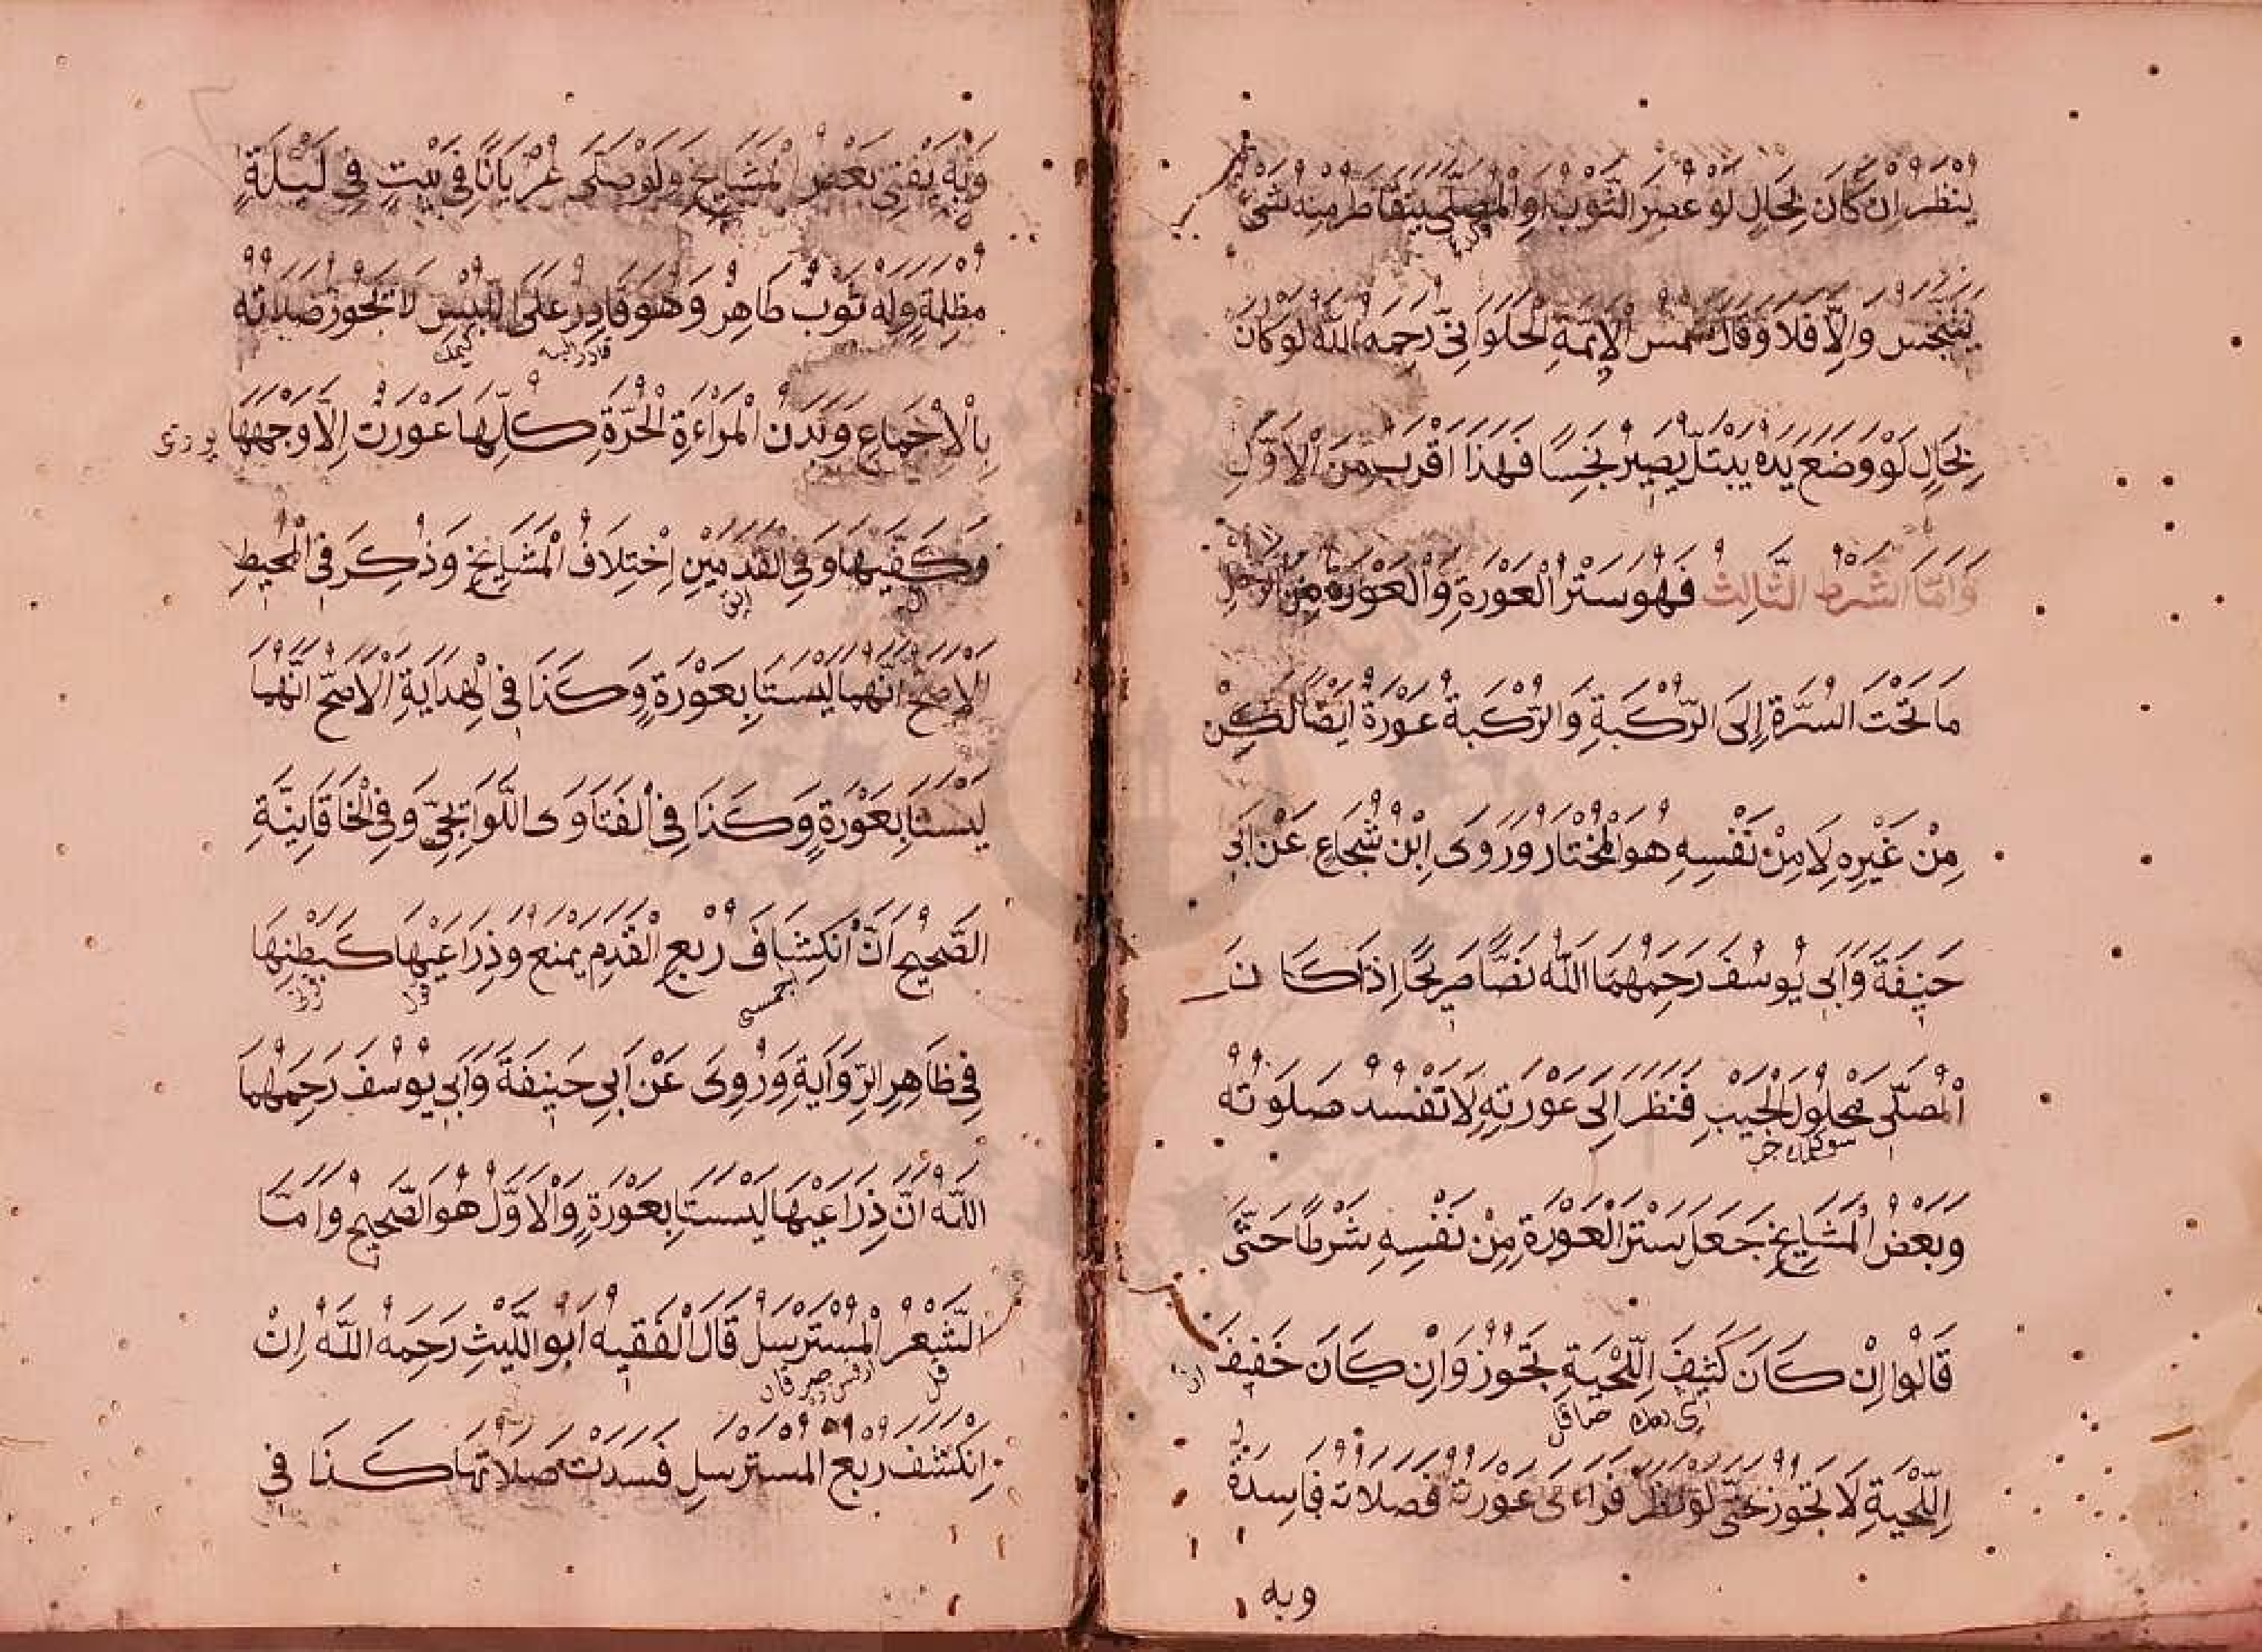 ينظر ان كان بحال لو عصر الثوب او المصلى يتقاطر منه شئ
يتنجس والا فلا وقال شمس الائمة الحلوانى رحمه الله لو كان
بحال لو وضع يده يبتل يصير نجسا فهذا اقرب من الاول
واما الشرط الثالث فهو ستر العورة والعورة من الرجل
ما تحت السرة الى الركبة والركبة عورة ايضا لكن
من غيره لا من نفسه هو المختار وروى ابن شجاع عن ابى
حنيفة وابى يوسف رحمهما الله نصا صريحا اذا كان
المصلى محلول الجيب فنظر الى عورته لا تفسد صلوته
وبعض المشايخ جعل ستر العورة من نفسه شرطا حتى
قالوا ان كان كثيف اللحية تجوز وان كان خفيف
اللحية لا تجوز حتى لو نظر فراءى عورته فصلاته فاسدة
وبه
وبه يفتى بعض المشايخ ولو صلى عريانا فى بيت فى ليلة
مظلمة وله ثوب طاهر وهو قادر على اللبس لا تجوز صلاته
بالاجماع وبدن المراءة الحرة كلها عورت الا وجهها
وكفيها وفى القدمين اختلاف المشايخ وذكر فى المحيط
الاصح انهما ليستا بعورة وكذا فى الهداية الاصح انهما
ليستا بعورة وكذا فى الفتاوى اللوالجى وفى الخاقانية
الصحيح ان انكشاف ربع القدم يمنع وذراعيها كبطنها
فى ظاهر الرواية وروى عن ابى حنيفة وابى يوسف رحمهما
الله ان ذراعيها ليستا بعورة والاول هو الصحيح واما
الشعر المسترسل قال الفقيه ابو الليث رحمه الله ان
انكشف ربع المسترسل فسدت صلاتها كذا فى